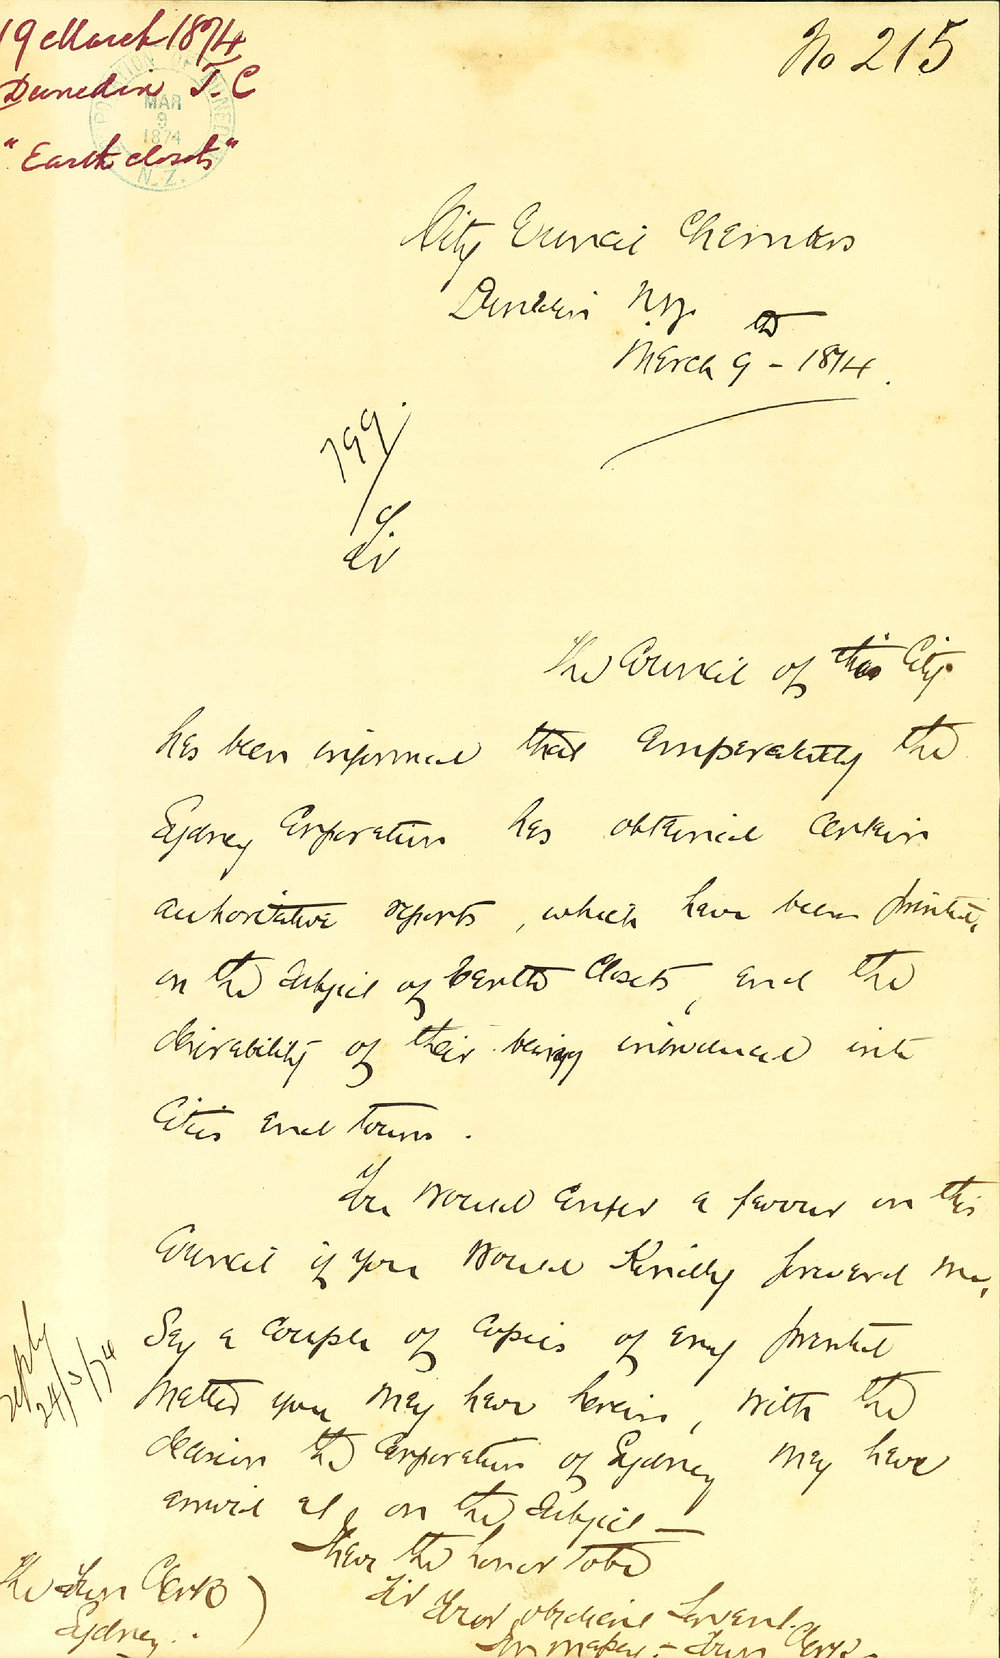 19 March 1874
No 215
Dunedin T.C
"Earth closets"
CORPORATION OF DUNEDIN
MAR
9
1874
N.Z.
City Council Chambers
Dunedin N.Z.
March 9th - 1874.
799.
Sir
The Council of this City
has been informed that the
Sydney Corporation has obtained certain
authoritative reports, which have been printed,
on the subject of Earth Closets, and the
desirability of their being introduced into
Cities and towns.
You would confer a favour on this
Council if you would kindly forward me,
Say a couple of copies of any printed
matter you may have herein, with the
decision the Corporation of Sydney may have
arrived at, on the subject —
I have the honor to be
Sir
Your obedient Servant.
Town Clerk.
reply
24/3/74
The Town Clerk
Sydney.